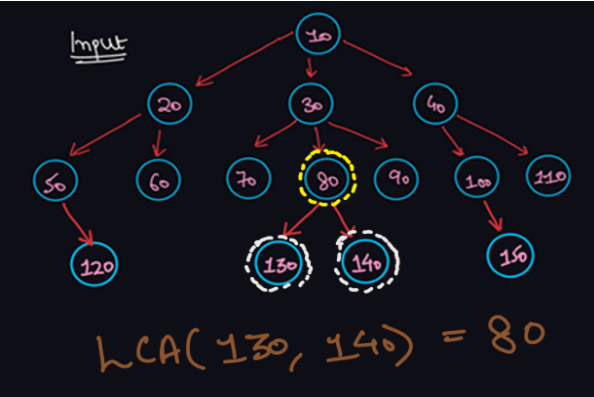 Input
10
20 30 40
50 60 70 80 90 100 110
120 130 140 150
LCA(130, 140) = 80